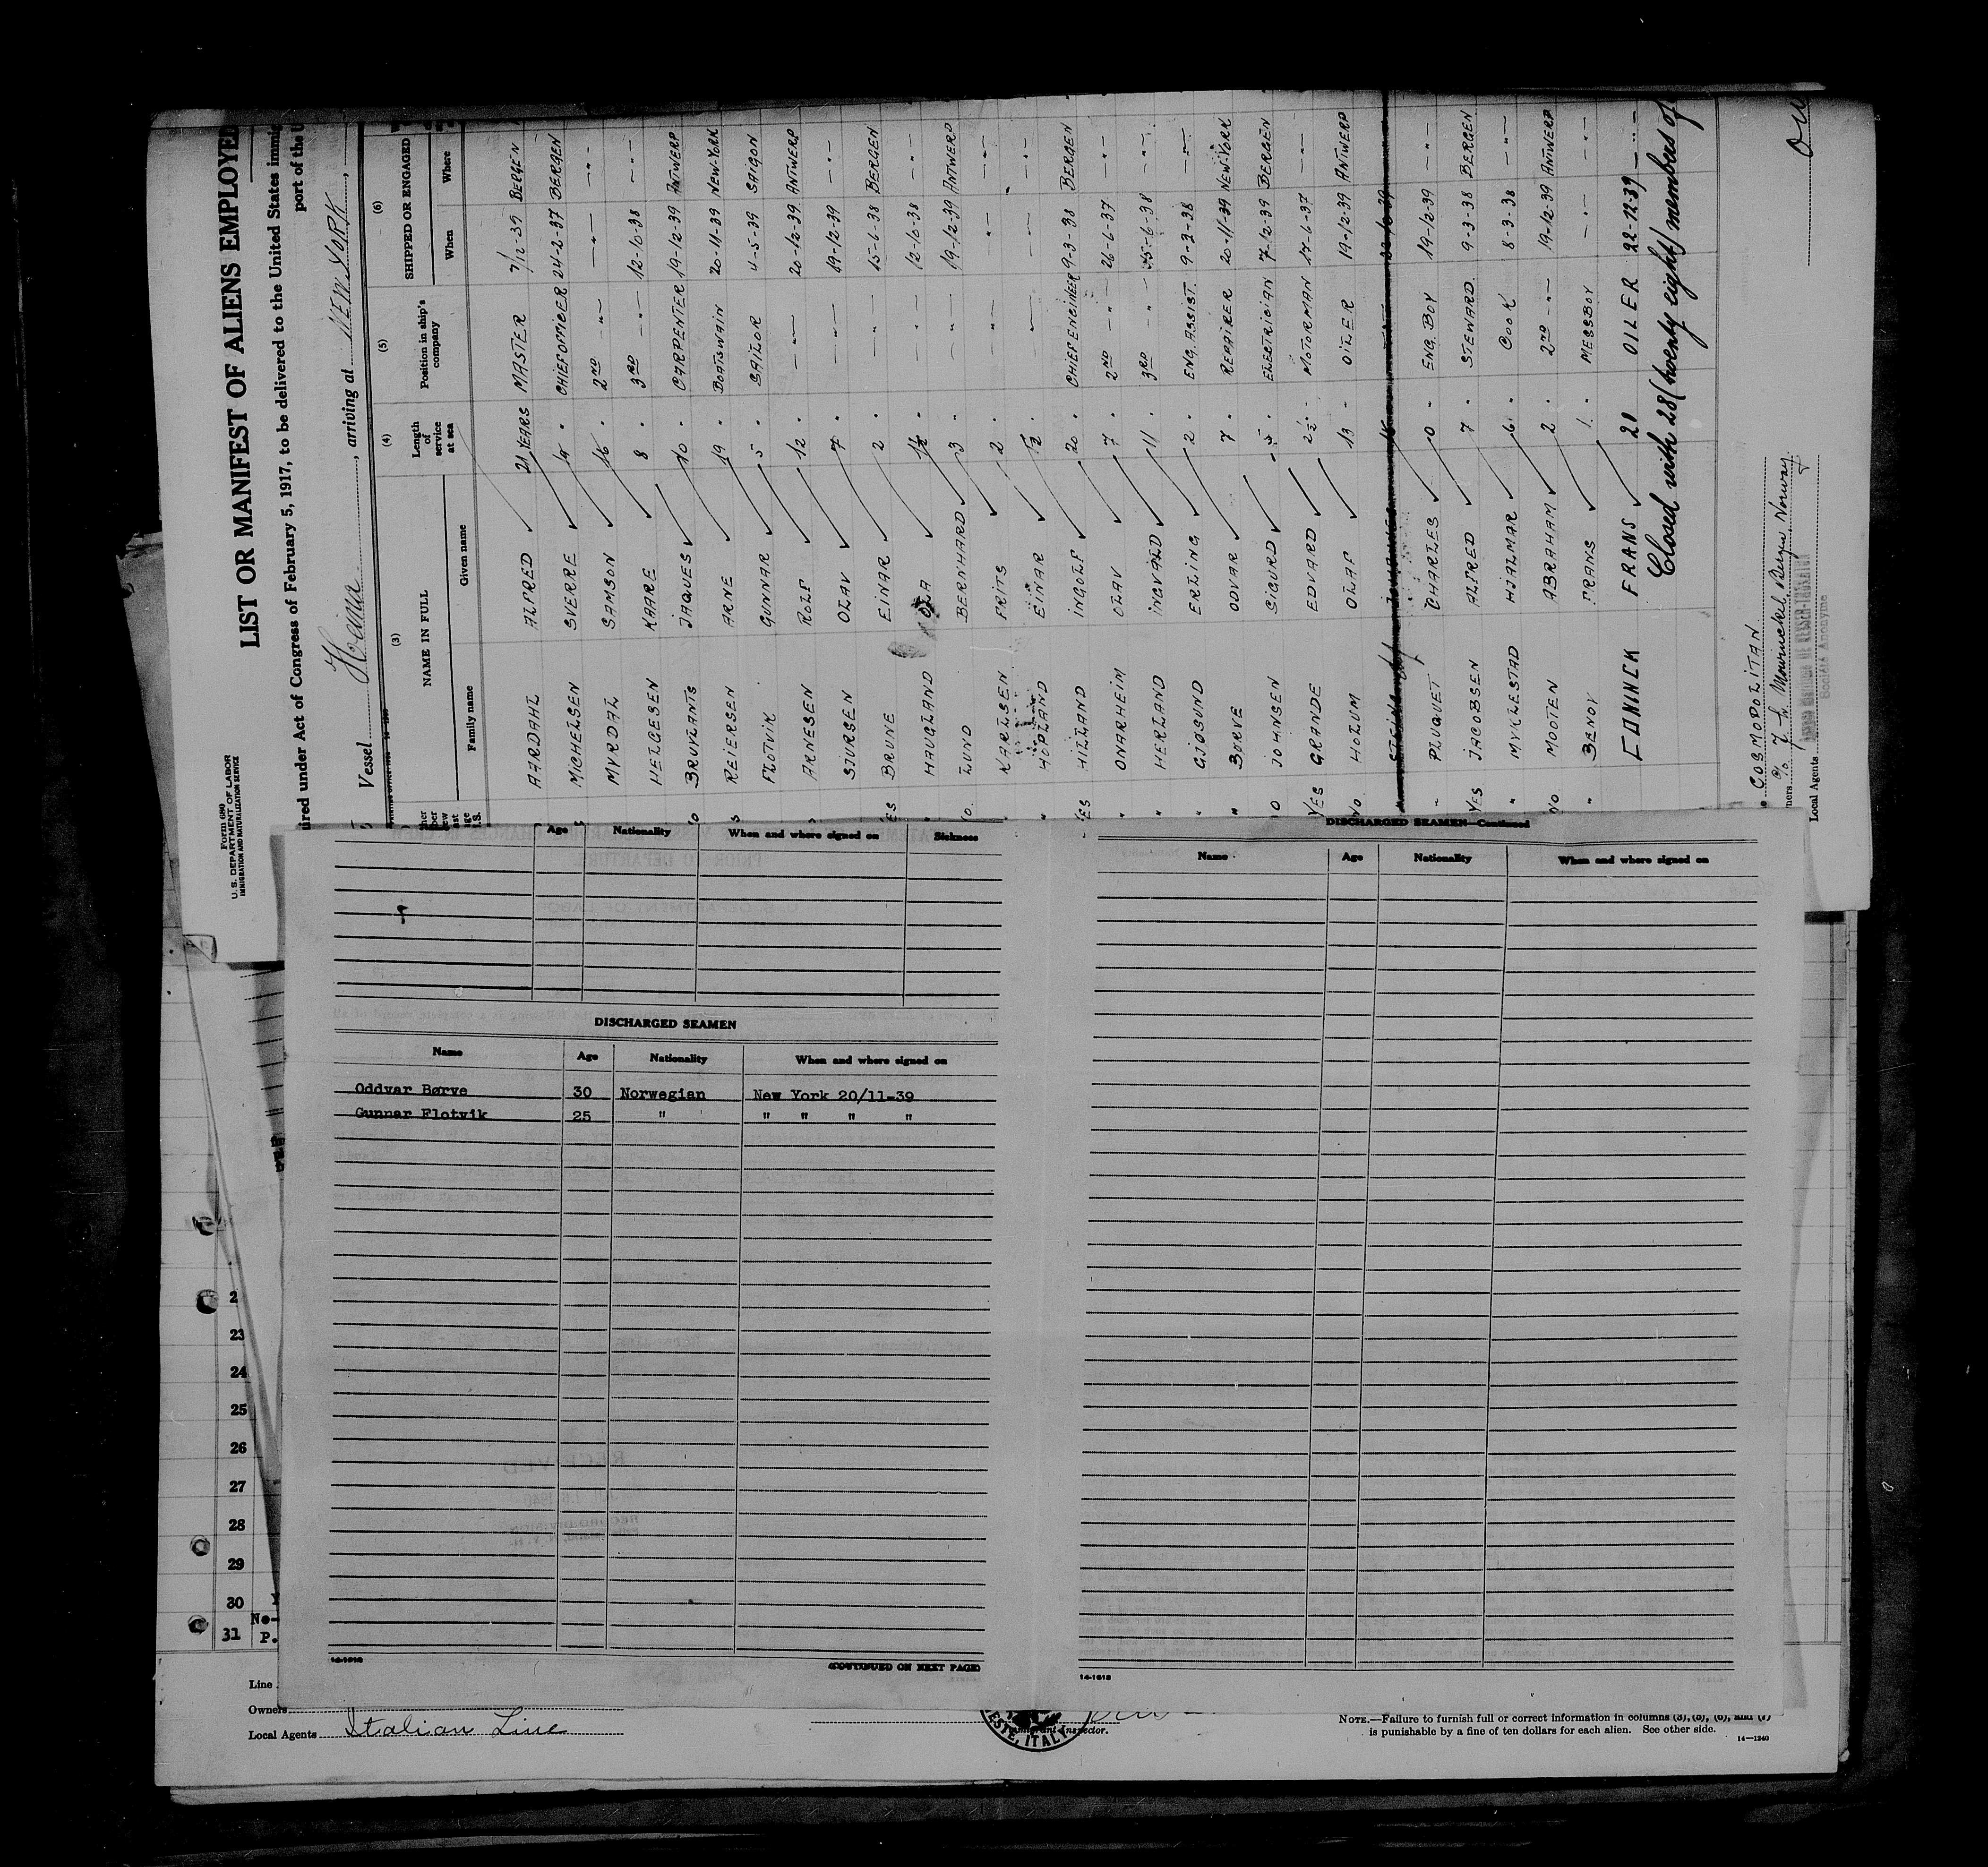 Form 680
U.S. DEPARTMENT OF LABOR
IMMIGRATION AND NATURALIZATION SERVICE
LIST OR MANIFEST OF ALIENS EMPLOYED
ured under Act of Congress of February 5, 1917, to be delivered to the United States immig
port of the U
Vessel Hoima, arriving at NEW YORK,
(3) (4) (5) (6)
NAME IN FULL Length of service at sea Position in ship's company SHIPPED OR ENGAGED
Family name Given name When Where
AARDAHL ALFRED 21 YEARS MASTER 7/12-39 BERGEN
MICHELSEN SVERRE 15 " CHIEFOFFICER 24-2-37 BERGEN
MYRDAL SAMSON 16 " 2ND -"- -"- -"-
HELGESEN KAARE 8 " 3RD -"- 12-10-38 -"-
NO BRUYLANTS JAQUES 10 " CARPENTER 19-12-39 ANTWERP
REIERSEN ARNE 19 " BOATSWAIN 20-11-39 NEW-YORK
FLOTVIK GUNNAR 5 " SAILOR 4-5-39 SAIGON
ARNESEN ROLF 12 " -"- 20-12-39 ANTWERP
SJURSEN OLAV 7 " -"- 19-12-39 -"-
YES BRUNE EINAR 2 " -"- 15-6-38 BERGEN
" HAUGLAND OLA 1½ " -"- 12-10-38 -"-
NO. LUND BERNHARD 3 " -"- 19-12-39 ANTWERP
KARLSEN FRITS 2 " -"- -"- -"-
" HOPLAND EINAR ½ " -"- -"- -"-
YES HILLAND INGOLF 20 " CHIEFENGINEER 9-3-38 BERGEN
" ONARHEIM OLAV 7 " 2ND -"- 26-6-37 -"-
" HERLAND INGVALD 11 " 3RD -"- 15-6-38 -"-
" GJØSUND ERLING 2 " ENG.ASSIST. 9-3-38 -"-
" BØRVE ODVAR 7 " REPAIRER 20-11-39 NEW-YORK
NO JOHNSEN SIGURD 5 " ELECTRICIAN 7-12-39 BERGEN
YES GRANDE EDVARD 2½ " MOTORMAN 17-6-37 -"-
NO HOLUM OLAF 13 " OILER 19-12-39 ANTWERP
" PLUQUET CHARLES 0 " ENG. BOY 19-12-39 -"-
YES JACOBSEN ALFRED 7 " STEWARD 9-3-38 BERGEN
" MYKLESTAD HJALMAR 6 " COOK 8-3-38 -"-
NO MOOTEN ABRAHAM 2 " 2ND -"- 19-12-39 ANTWERP
" BENOY FRANS 1 " MESSBOY -"- -"-
CONINCK FRANS 20 OILER 22-12-39 -"-
Closed with 28 (twenty eight) members of
COSMOPOLITAN
% J. L. Mowinckel, Bergen Norway
Local Agents
Société Anonyme
Age Nationality When and where signed on Sickness
DISCHARGED SEAMEN
Name Age Nationality When and where signed on
Oddvar Børve 30 Norwegian New York 20/11-39
Gunnar Flotvik 25 " " " " "
14-1613
(CONTINUED ON NEXT PAGE)
DISCHARGED SEAMEN—Continued
Name Age Nationality When and where signed on
14-1613
2
23
24
25
26
27
28
29
30
No-
31 P.
Line
Owners
Local Agents Italian Line
ESTE, ITALY
Immigrant Inspector.
NOTE.—Failure to furnish full or correct information in columns (3), (5), (6), and (7)
is punishable by a fine of ten dollars for each alien. See other side.
14—1240